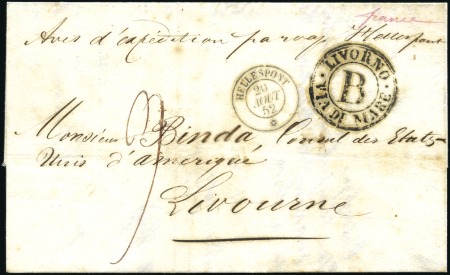 france
Avis d'expédition par vap. Hellespont
HELLESPONT
20
AOUT
52
LIVORNO
B
VIA DI MARE
Monsieur Binda, Consul des Etats-
Unis d'amérique
Livourne